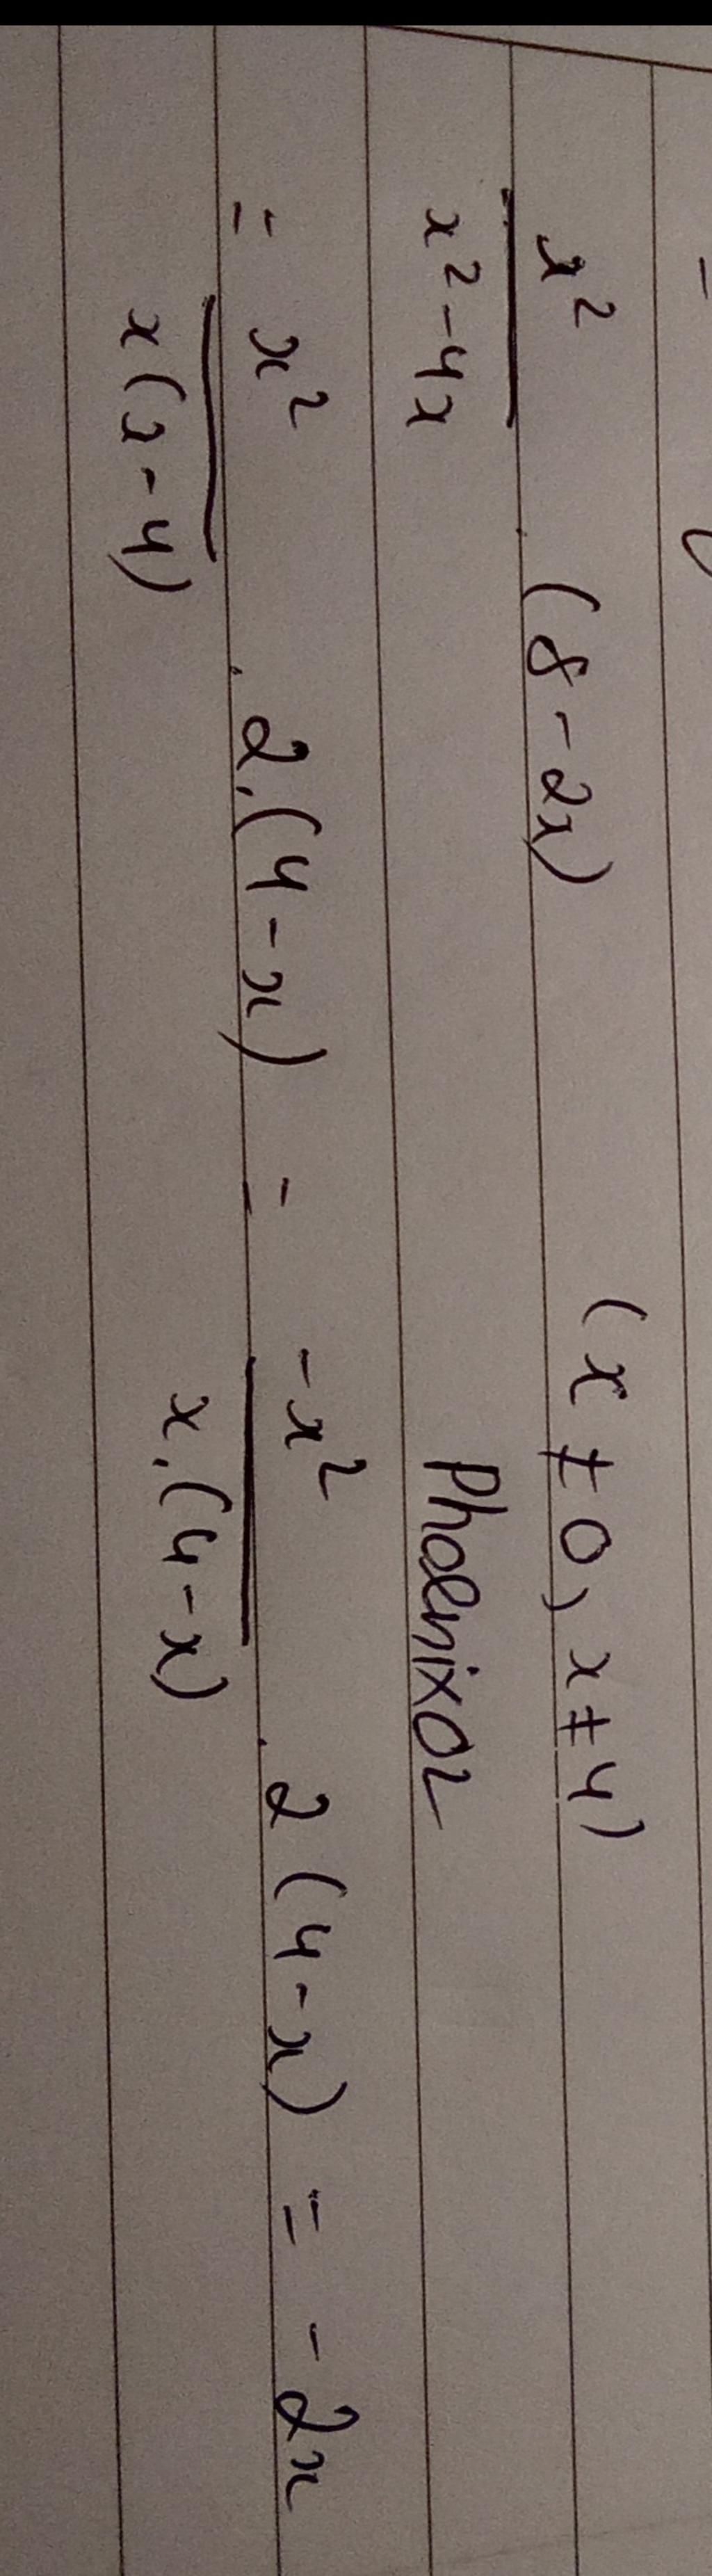 x²/(x²-4x) . (8-2x) (x≠0, x≠4)
Phoenix02
= x²/(x(x-4)) . 2.(4-x) = -x²/(x.(4-x)) . 2(4-x) = -2x